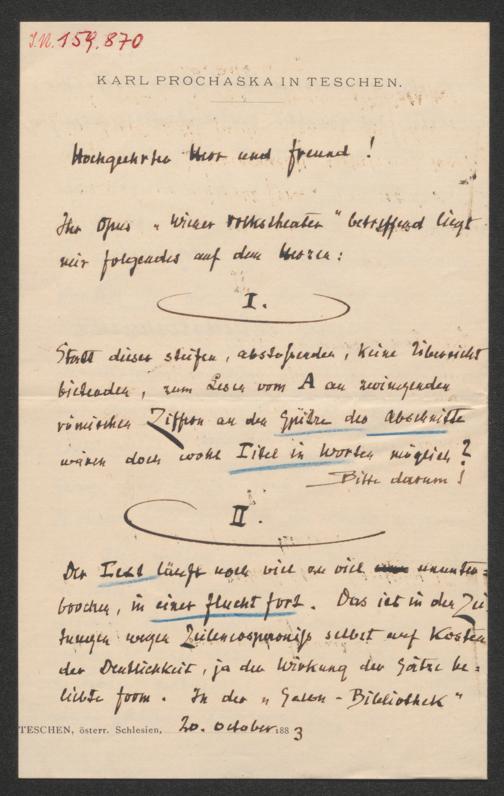 I.N. 159.870
KARL PROCHASKA IN TESCHEN.
Hochgeehrter Herr und Freund!
Ihr Opus „Wiener Volkstheater" betreffend liegt
mir folgendes auf dem Herzen:
I.
Statt dieser steifen, abstoßenden, keine Übersicht
bietenden, zum Lesen vom A an zwingenden
römischen Ziffern an der Spitze des Abschnitts
wären doch wohl Titel in Worten möglich?
Bitte darum!
II.
Der Text läuft noch viel zu viel ununter=
brochen, in einer Flucht fort. Das ist in den Zei
tungen wegen Zeilenersparniß selbst auf Kosten
der Deutlichkeit, ja der Wirkung der Sätze be=
liebte Form. In der „Salon-Bibliothek"
TESCHEN, österr. Schlesien, 20. October 1883